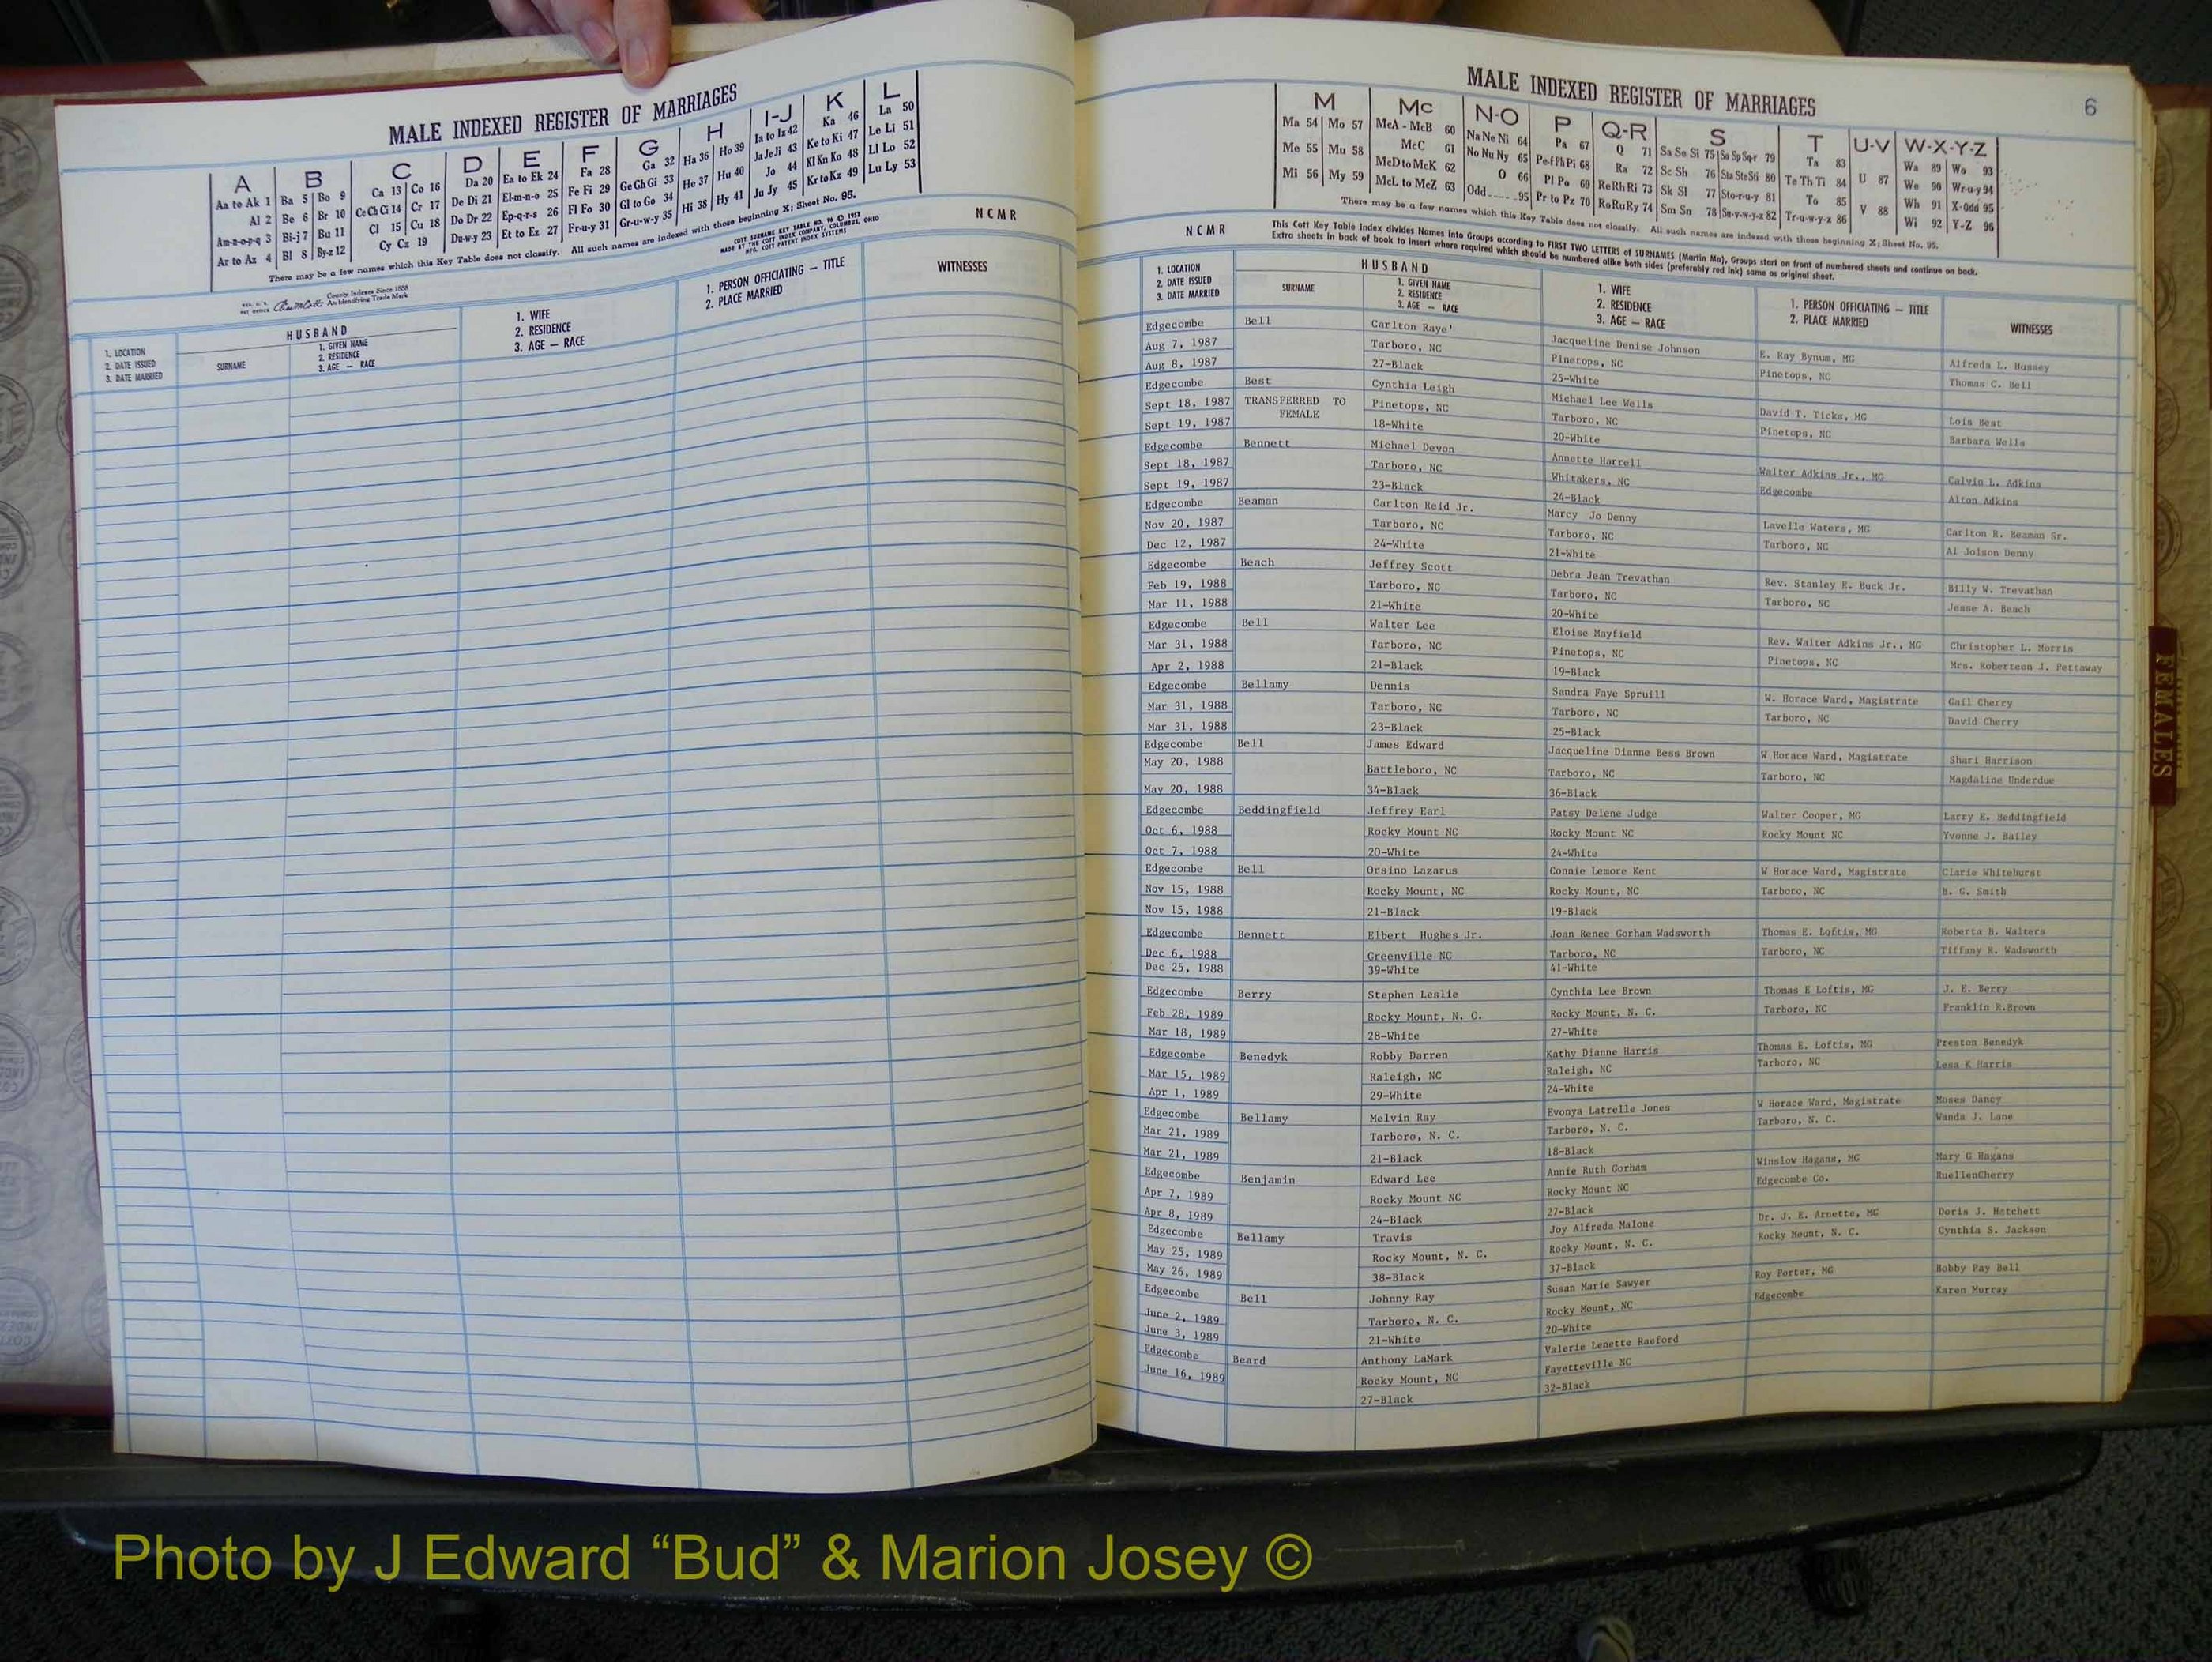 MALE INDEXED REGISTER OF MARRIAGES
A B C D E F G H I-J K L
Aa to Ak 1 Ba 5 Bo 9 Ca 13 Co 16 Da 20 Ea to Ek 24 Fa 28 Ga 32 Ha 36 Ho 39 Ia to Iz 42 Ka 46 La 50
Al 2 Be 6 Br 10 Ce Ch Ci 14 Cr 17 De Di 21 El-m-n-o 25 Fe Fi 29 Ge Gh Gi 33 He 37 Hu 40 Ja Je Ji 43 Ke to Ki 47 Le Li 51
Am-n-o-p-q 3 Bi-j 7 Bu 11 Cl 15 Cu 18 Do Dr 22 Ep-q-r-s 26 Fl Fo 30 Gl to Go 34 Hi 38 Hy 41 Jo 44 Kl Kn Ko 48 Ll Lo 52
Ar to Az 4 Bl 8 By-z 12 Cy Cz 19 Du-w-y 23 Et to Ez 27 Fr-u-y 31 Gr-u-w-y 35 Ju Jy 45 Kr to Kz 49 Lu Ly 53
There may be a few names which this Key Table does not classify. All such names are indexed with those beginning X; Sheet No. 95.
County Indexes Since 1888
An Identifying Trade Mark
COTT SURNAME KEY TABLE NO. 96 © 1952
MADE BY THE COTT INDEX COMPANY, COLUMBUS, OHIO
MFG. COTT PATENT INDEX SYSTEMS
NCMR
1. LOCATION
2. DATE ISSUED
3. DATE MARRIED
HUSBAND
SURNAME
1. GIVEN NAME
2. RESIDENCE
3. AGE — RACE
1. WIFE
2. RESIDENCE
3. AGE — RACE
1. PERSON OFFICIATING — TITLE
2. PLACE MARRIED
WITNESSES
MALE INDEXED REGISTER OF MARRIAGES
6
M Mc N-O P Q-R S T U-V W-X-Y-Z
Ma 54 Mo 57 McA - McB 60 Na Ne Ni 64 Pa 67 Q 71 Sa Se Si 75 So Sp Sq-r 79 Ta 83 U 87 Wa 89 Wo 93
Me 55 Mu 58 McC 61 No Nu Ny 65 Pe-f Ph Pi 68 Ra 72 Sc Sh 76 Sta Ste Sti 80 Te Th Ti 84 V 88 We 90 Wr-u-y 94
Mi 56 My 59 McD to McK 62 O 66 Pl Po 69 Re Rh Ri 73 Sk Sl 77 Sto-r-u-y 81 To 85 Wh 91 X-Odd 95
McL to McZ 63 Odd 95 Pr to Pz 70 Ro Ru Ry 74 Sm Sn 78 Su-v-w-y-z 82 Tr-u-w-y-z 86 Wi 92 Y-Z 96
There may be a few names which this Key Table does not classify. All such names are indexed with those beginning X; Sheet No. 95.
This Cott Key Table Index divides Names into Groups according to FIRST TWO LETTERS of SURNAMES (Martin Ma), Groups start on front of numbered sheets and continue on back.
Extra sheets in back of book to insert where required which should be numbered alike both sides (preferably red ink) same as original sheet.
NCMR
1. LOCATION
2. DATE ISSUED
3. DATE MARRIED
HUSBAND
SURNAME
1. GIVEN NAME
2. RESIDENCE
3. AGE — RACE
1. WIFE
2. RESIDENCE
3. AGE — RACE
1. PERSON OFFICIATING — TITLE
2. PLACE MARRIED
WITNESSES
Edgecombe Bell Carlton Raye' Jacqueline Denise Johnson E. Ray Bynum, MG Alfreda L. Hussey
Aug 7, 1987 Tarboro, NC Pinetops, NC Pinetops, NC Thomas C. Bell
Aug 8, 1987 27-Black 25-White
Edgecombe Best Cynthia Leigh Michael Lee Wells David T. Ticks, MG Lois Best
Sept 18, 1987 TRANSFERRED TO Pinetops, NC Tarboro, NC Pinetops, NC Barbara Wells
FEMALE
Sept 19, 1987 18-White 20-White
Edgecombe Bennett Michael Devon Annette Harrell Walter Adkins Jr., MG Calvin L. Adkins
Sept 18, 1987 Tarboro, NC Whitakers, NC Edgecombe Alton Adkins
Sept 19, 1987 23-Black 24-Black
Edgecombe Beaman Carlton Reid Jr. Marcy Jo Denny Lavelle Waters, MG Carlton R. Beaman Sr.
Nov 20, 1987 Tarboro, NC Tarboro, NC Tarboro, NC Al Jolson Denny
Dec 12, 1987 24-White 21-White
Edgecombe Beach Jeffrey Scott Debra Jean Trevathan Rev. Stanley E. Buck Jr. Billy W. Trevathan
Feb 19, 1988 Tarboro, NC Tarboro, NC Tarboro, NC Jesse A. Beach
Mar 11, 1988 21-White 20-White
Edgecombe Bell Walter Lee Eloise Mayfield Rev. Walter Adkins Jr., MG Christopher L. Morris
Mar 31, 1988 Tarboro, NC Pinetops, NC Pinetops, NC Mrs. Roberteen J. Pettaway
Apr 2, 1988 21-Black 19-Black
Edgecombe Bellamy Dennis Sandra Faye Spruill W. Horace Ward, Magistrate Gail Cherry
Mar 31, 1988 Tarboro, NC Tarboro, NC Tarboro, NC David Cherry
Mar 31, 1988 23-Black 25-Black
Edgecombe Bell James Edward Jacqueline Dianne Bess Brown W Horace Ward, Magistrate Shari Harrison
May 20, 1988 Battleboro, NC Tarboro, NC Tarboro, NC Magdaline Underdue
May 20, 1988 34-Black 36-Black
Edgecombe Beddingfield Jeffrey Earl Patsy Delene Judge Walter Cooper, MG Larry E. Beddingfield
Oct 6, 1988 Rocky Mount NC Rocky Mount NC Rocky Mount NC Yvonne J. Bailey
Oct 7, 1988 20-White 24-White
Edgecombe Bell Orsino Lazarus Connie Lemore Kent W Horace Ward, Magistrate Clarie Whitehurst
Nov 15, 1988 Rocky Mount, NC Rocky Mount, NC Tarboro, NC B. G. Smith
Nov 15, 1988 21-Black 19-Black
Edgecombe Bennett Elbert Hughes Jr. Joan Renee Gorham Wadsworth Thomas E. Loftis, MG Roberta B. Walters
Dec 6, 1988 Greenville NC Tarboro, NC Tarboro, NC Tiffany R. Wadsworth
Dec 25, 1988 39-White 41-White
Edgecombe Berry Stephen Leslie Cynthia Lee Brown Thomas E Loftis, MG J. E. Berry
Feb 28, 1989 Rocky Mount, N. C. Rocky Mount, N. C. Tarboro, NC Franklin R.Brown
Mar 18, 1989 28-White 27-White
Edgecombe Benedyk Robby Darren Kathy Dianne Harris Thomas E. Loftis, MG Preston Benedyk
Mar 15, 1989 Raleigh, NC Raleigh, NC Tarboro, NC Lesa K Harris
Apr 1, 1989 29-White 24-White
Edgecombe Bellamy Melvin Ray Evonya Latrelle Jones W Horace Ward, Magistrate Moses Dancy
Mar 21, 1989 Tarboro, N. C. Tarboro, N. C. Tarboro, N. C. Wanda J. Lane
Mar 21, 1989 21-Black 18-Black
Edgecombe Benjamin Edward Lee Annie Ruth Gorham Winslow Hagans, MG Mary G Hagans
Apr 7, 1989 Rocky Mount NC Rocky Mount NC Edgecombe Co. RuellenCherry
Apr 8, 1989 24-Black 27-Black
Edgecombe Bellamy Travis Joy Alfreda Malone Dr. J. E. Arnette, MG Doris J. Hotchett
May 25, 1989 Rocky Mount, N. C. Rocky Mount, N. C. Rocky Mount, N. C. Cynthia S. Jackson
May 26, 1989 38-Black 37-Black
Edgecombe Bell Johnny Ray Susan Marie Sawyer Roy Porter, MG Bobby Ray Bell
June 2, 1989 Tarboro, N. C. Rocky Mount, NC Edgecombe Karen Murray
June 3, 1989 21-White 20-White
Edgecombe Beard Anthony LaMark Valerie Lenette Raeford
June 16, 1989 Rocky Mount, NC Fayetteville NC
27-Black 32-Black
FEMALES
Photo by J Edward “Bud” & Marion Josey ©